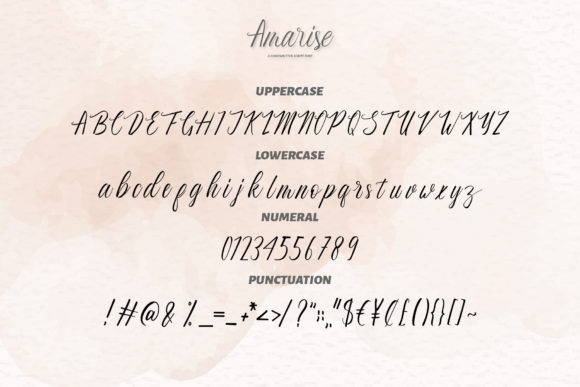 Amarise
A HANDWRITTEN SCRIPT FONT
UPPERCASE
ABCDEFGHIJKLMNOPQSTUVWXYZ
LOWERCASE
abcdefghijklmnopqrstuvwxyz
NUMERAL
01234556789
PUNCTUATION
!#@&%_=-+*<>/?“:;„”$€¥£[(){}[]~